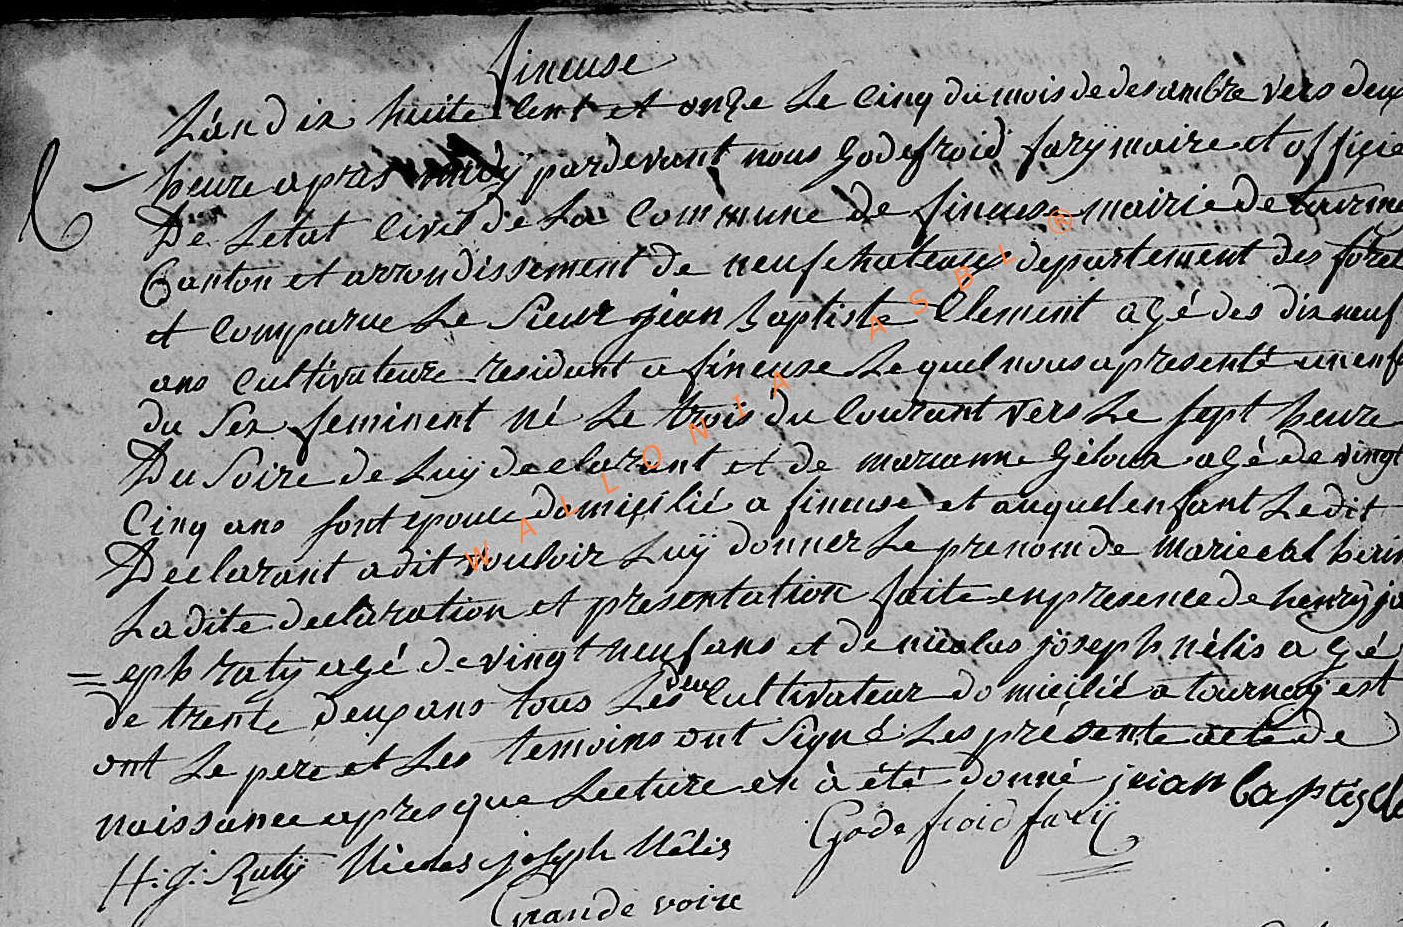 fineuse
L'an dix huite Cent et onze Le Cinq du mois de desambre vers deux
heure apras midÿ pardevant nous Godefroid farÿ maire et officie
De Letat Civil de La Commune de fineuse mairie de tourna
Canton et arrondissement de neufchateaux departement des foret
et Comparue Le Sieur jean Baptiste Clement agé des dix neuf
ans Cultivateure residant a fineuse Lequel nous a presenté un enf
du Sex feminent né Le trois du Courant vers Le sept heure
Du Soire de Luÿ declarant et de marianne Giloux agé de vingt
Cinq ans sont epouse domicilié a fineuse et auquel enfant Le dit
Declarant a dit vouloir Luÿ donner Le prenom de marie catherin
La dite declaration et presentation faite en presence de henrÿ jo
=eph ratÿ agé de vingt neuf ans et de nicolas joseph nélis agé
de trente deux ans tous Les deux Cultivateur domicilié a tournaÿ est
ont Le pere et Les temoins ont Signé Les présente acte de
naissance apres que Lecture en à été donné jeian baptis cle
H: j: Ratÿ Nicolas joseph Nélis Godefroid farÿ
Grande voire
WALLONIA ASBL ®